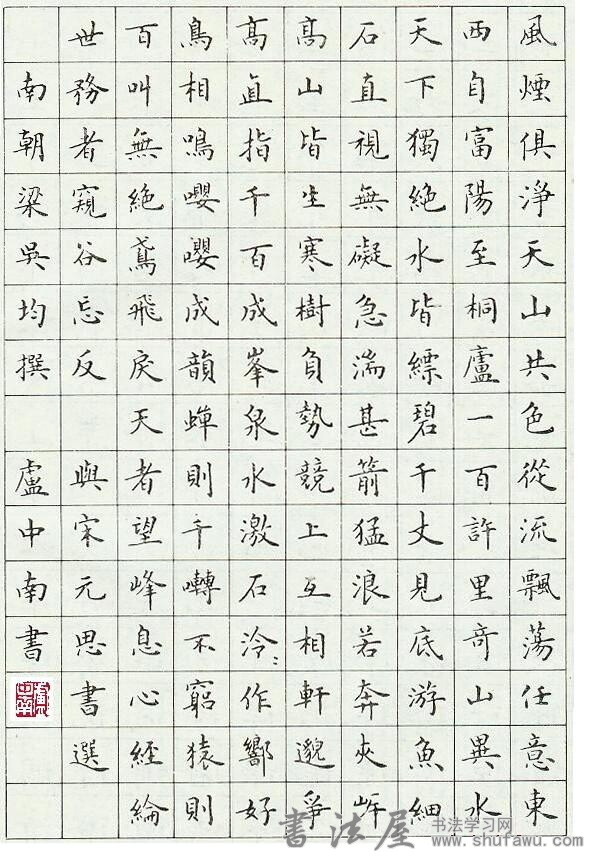 風煙俱淨天山共色從流飄蕩任意東
西自富陽至桐廬一百許里奇山異水
天下獨絕水皆縹碧千丈見底游魚細
石直視無礙急湍甚箭猛浪若奔夾岸
高山皆生寒樹負勢競上互相軒邈爭
高直指千百成峯泉水激石泠〻作響好
鳥相鳴嚶嚶成韻蟬則千囀不窮猿則
百叫無絕鳶飛戾天者望峰息心經綸
世務者窺谷忘反 與宋元思書選
南朝梁吳均撰 盧中南書
盧中南
書法屋
书法学习网
www.shufawu.com